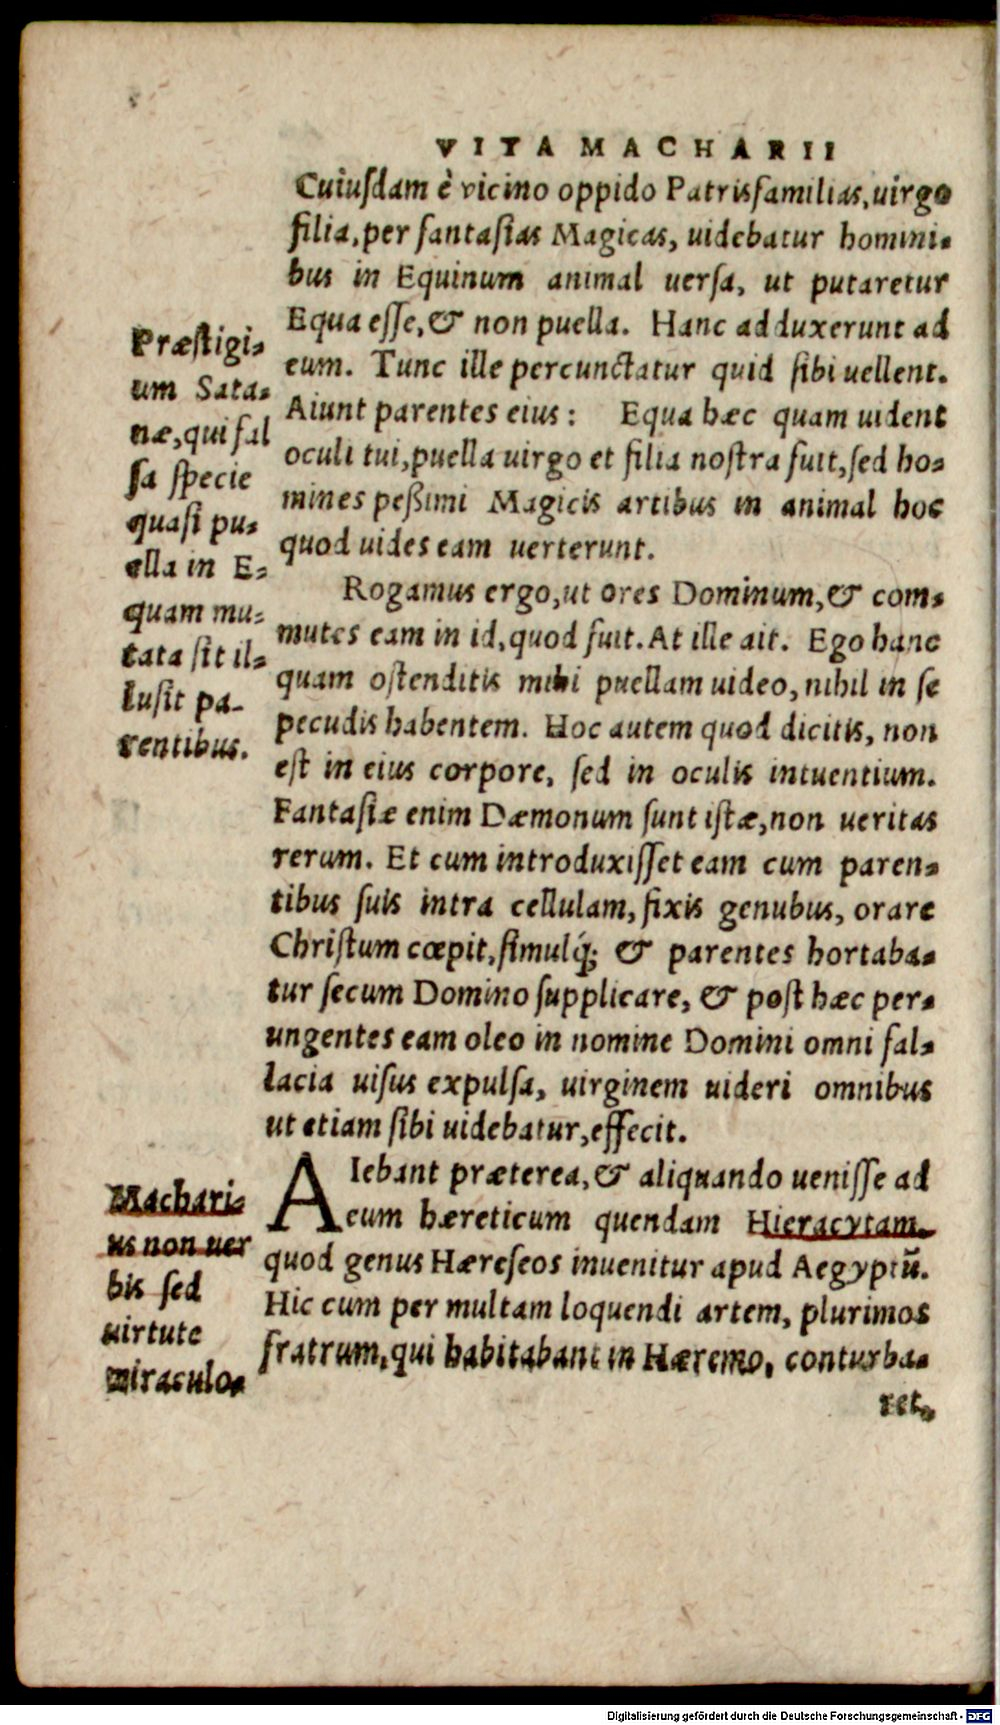 VITA MACHARII
Cuiusdam è vicino oppido Patrisfamilias, uirgo
filia, per fantasias Magicas, uidebatur homini⸗
bus in Equinum animal uersa, ut putaretur
Equa esse, & non puella. Hanc adduxerunt ad
eum. Tunc ille percunctatur quid sibi uellent.
Aiunt parentes eius: Equa hæc quam uident
oculi tui, puella uirgo et filia nostra fuit, sed ho⸗
mines peßimi Magicis artibus in animal hoc
quod uides eam uerterunt.
Rogamus ergo, ut ores Dominum, & com⸗
mutes eam in id, quod fuit. At ille ait. Ego hanc
quam ostenditis mihi puellam uideo, nihil in se
pecudis habentem. Hoc autem quod dicitis, non
est in eius corpore, sed in oculis intuentium.
Fantasiæ enim Dæmonum sunt istæ, non ueritas
rerum. Et cum introduxisset eam cum paren⸗
tibus suis intra cellulam, fixis genubus, orare
Christum cœpit, simulq́; & parentes hortaba⸗
tur secum Domino supplicare, & post hæc per⸗
ungentes eam oleo in nomine Domini omni fal⸗
lacia uisus expulsa, uirginem uideri omnibus
ut etiam sibi uidebatur, effecit.
AIebant præterea, & aliquando uenisse ad
eum hæreticum quendam Hieracytam⸗
quod genus Hæreseos inuenitur apud Aegyptũ.
Hic cum per multam loquendi artem, plurimos
fratrum, qui habitabant in Hæremo, conturba⸗
ret,
Præstigi⸗
um Sata⸗
næ, qui fal
sa specie
quasi pu⸗
ella in E⸗
quam mu⸗
tata sit il⸗
lusit pa-
rentibus.
Machari⸗
us non uer
bis sed
uirtute
miraculo⸗
Digitalisierung gefördert durch die Deutsche Forschungsgemeinschaft - DFG